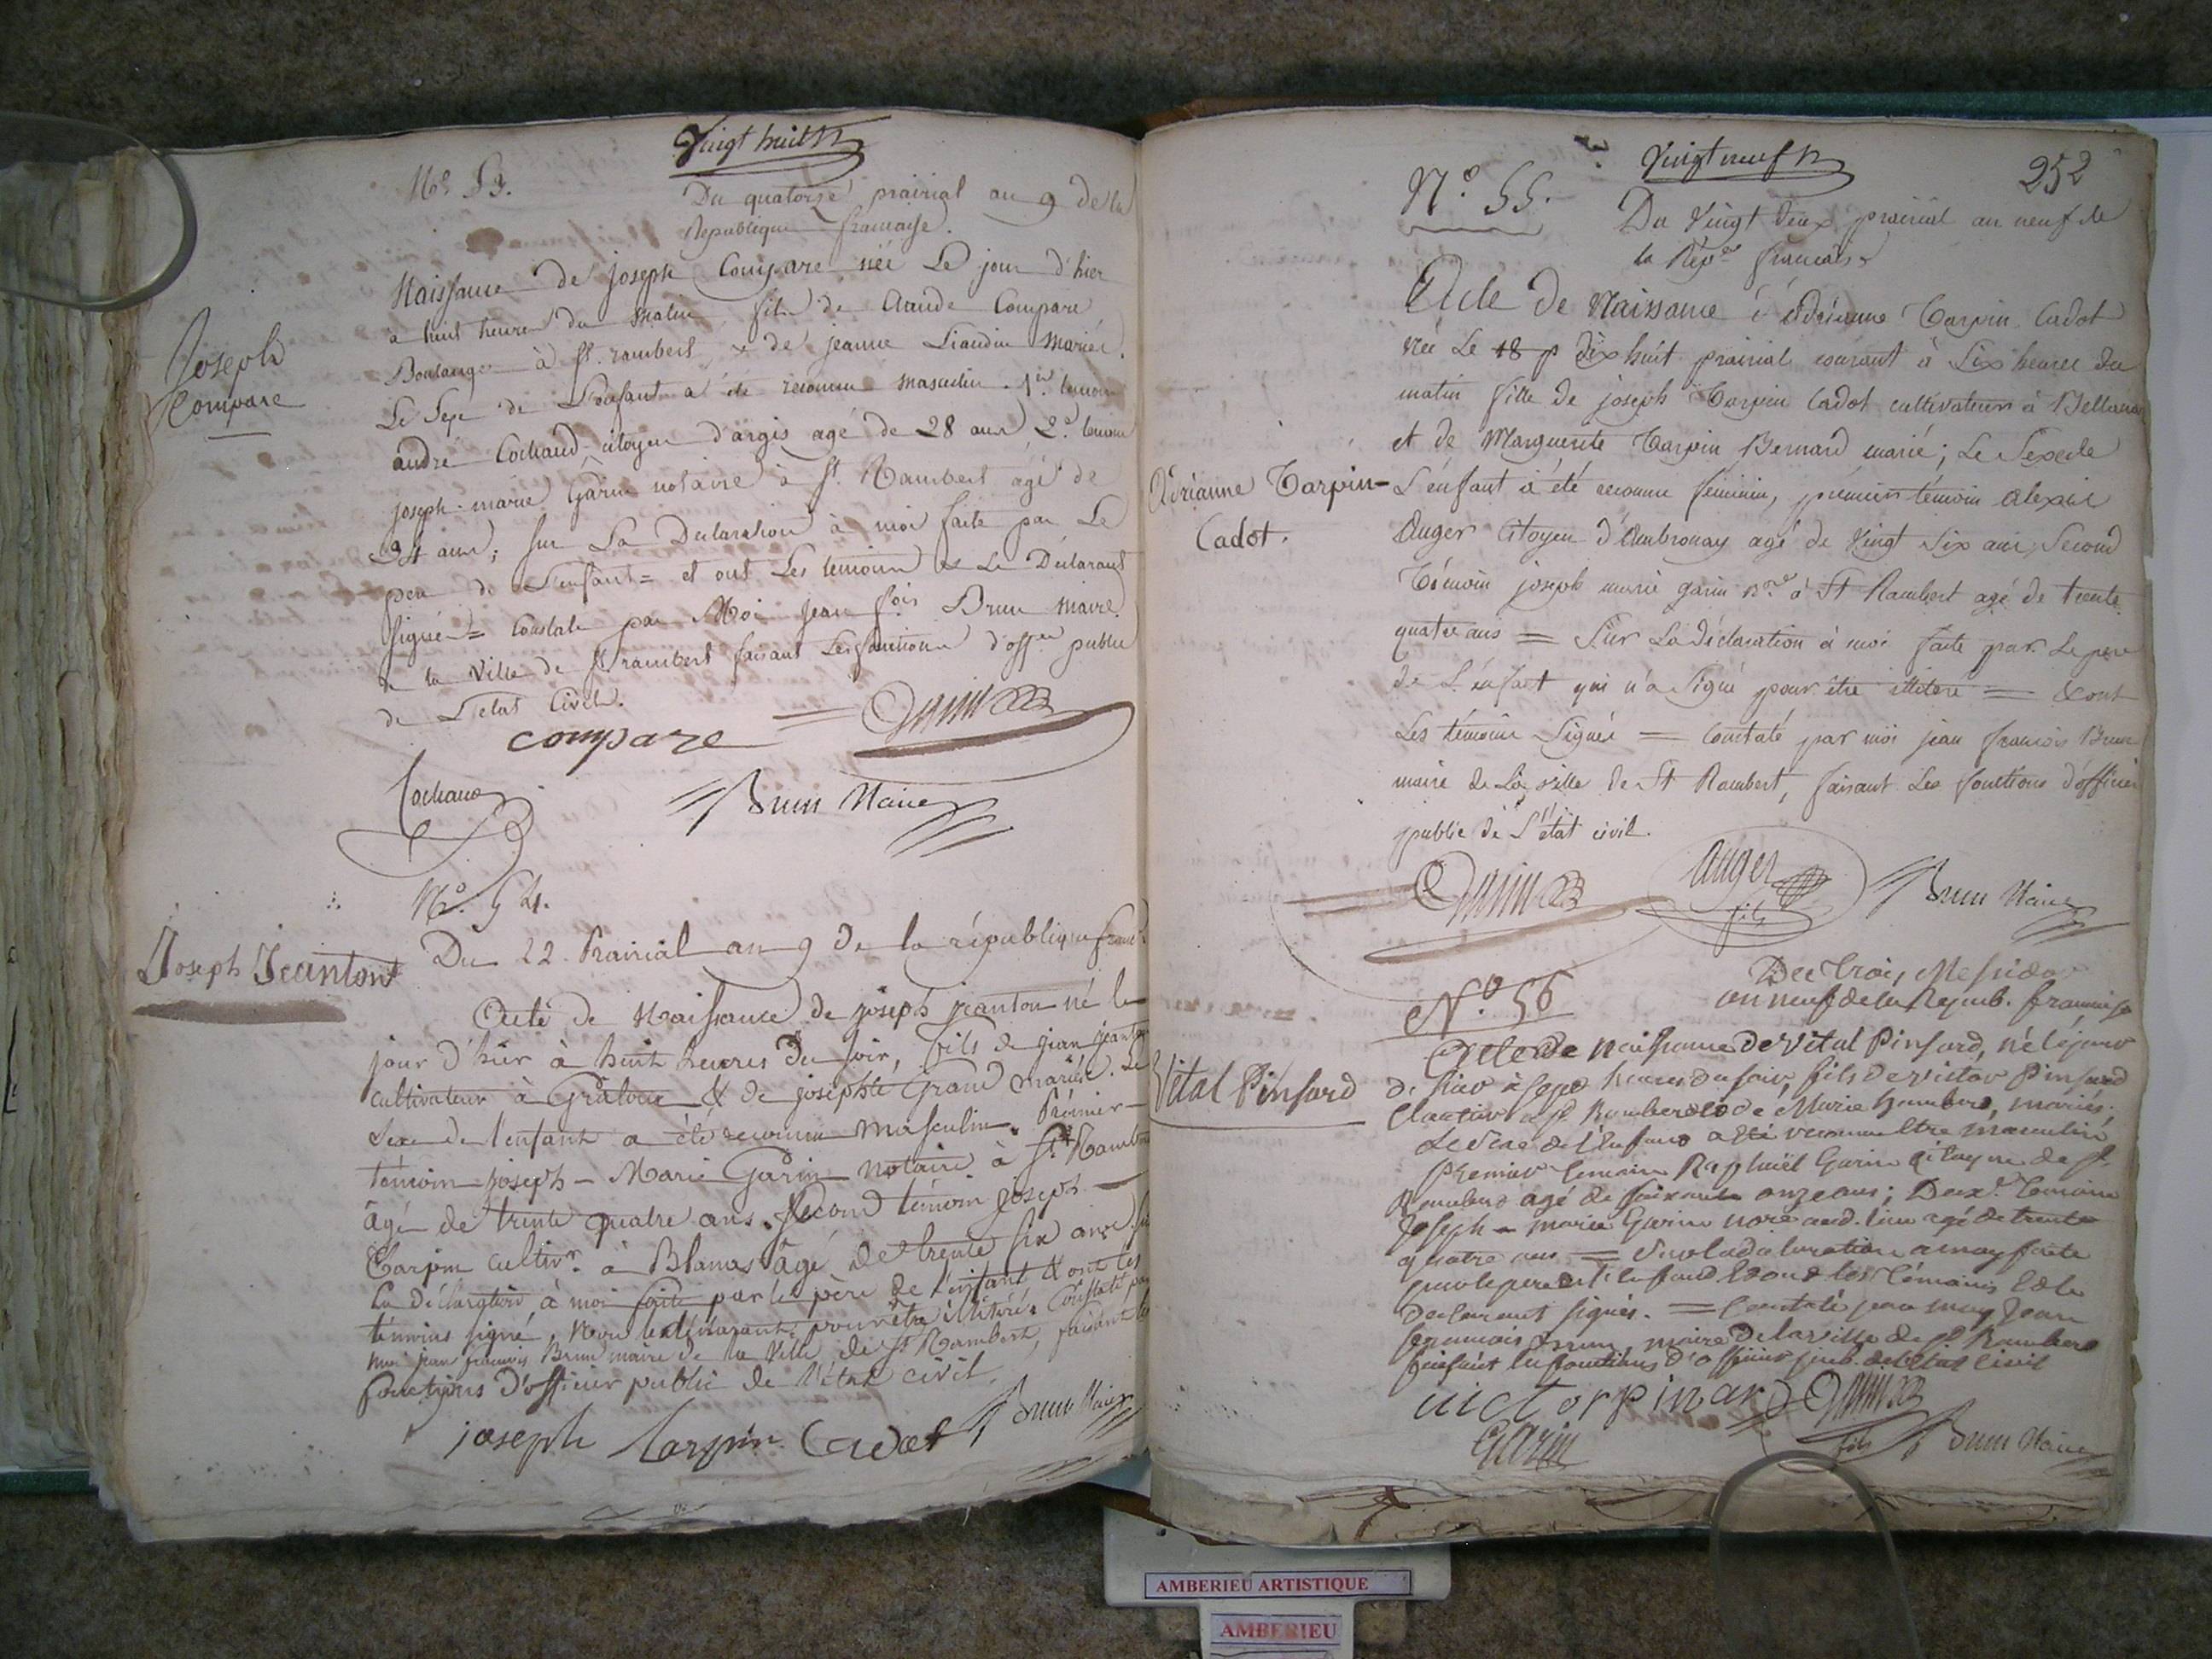 Vingt huit
No 53.
Du quatorze prairial an 9 de la
Republique francaise.
Joseph
Compare
Naissance de joseph Compare née Le jour d'hier
à huit heures du matin fils de Claude Compare
Boulanger à St. rambert & de jeanne Liaudin Mariés.
Le Sexe de L'enfant a été reconnu masculin. 1er temoin
andré Cochaud citoyen d'argis agé de 28 ans, 2d temoin
joseph-marie Garin notaire à St. Rambert agé de
34 ans; sur La Declaration à moi faite par Le
pere de L'enfant = et ont Les temoins & Le Déclarant
signés = Constaté par Moi jean fois Brun maire
de la Ville de St rambert faisant Les fonctions d'offer public
de L'etat Civil.
compare
Garin
Cochaud
Brun Maire
No. 54.
Joseph Jeanton
Du 22. Prairial an 9 de la république franc
Acte de Naissance de joseph jeanton né le
jour d'hier à huit heures du soir, fils de jean jeanton
cultivateur à & de josephte Grand mariés. Le
Sexe de l'enfant a été reconnu masculin. Premier
témoin joseph-Marie Garin notaire à St. Rambert
âgé de trente quatre ans. Second témoin joseph
Tarpin cultivr. à Blanas âgé de trente six ans. sur
La déclaration à moi faite par le père de l'enfant & ont les
témoins signé, Non le déclarant pour être illitéré. Constaté par
moi jean francois Brun maire de la Ville de St Rambert, faisant les
fonctions d'officier public de l'état civil.
joseph tarpin Cadot
Brun Maire
Vingt neuf
252
N.o 55.
Du Vingt deux prairial an neuf de
la Répe francaise
Acte de Naissance d'Adrianne Tarpin Cadot
née Le 18 p Dix huit prairial courant à Six heures du
matin fille de joseph Tarpin Cadot cultivateur à
et de Marguerite Tarpin Bernard marié; Le Sexe de
Adrianne Tarpin-
Cadot.
L'enfant à été reconnu féminin, premier témoin alexis
Auger Citoyen d'Ambronay agé de Vingt Six ans; Second
Témoin joseph marie garin nre à St Rambert agé de trente
quatre ans = Sur La déclaration à moi faite par Le pere
de L'enfant qui n'a Signé pour être illiteré = & ont
Les témoins Signés = Constaté par moi jean francois Brun
maire de La ville de St Rambert, faisant Les fonctions d'officier
public de L'état civil.
Garin
auger
fils
Brun Maire
N.o 56
Du trois Messidor
an neuf de la Repub. francaise
Vital Pinsard
Acte de naissance de Vital Pinsard, né le jour
d'hier à sept heures du soir, fils de victor Pinsard
à St Rambert & de Marie mariés.
Le Sexe de l'Enfant a été reconnu Etre masculin
Premier temoin Raphaël Garin citoyen de St
Rambert agé de soixante onze ans; Deux.e temoin
Joseph-marie Garin nore aud. lieu agé de trente
quatre ans = Sur la déclaration a moy faite
par le pere de l'enfant & ont les témoins & le
declarant signés. = Constaté par moy Jean
francois Brun, maire de la ville de St Rambert
faisant les fonctions d'officier pub. de l'Etat Civil
victor pinard
Garin
Garin
fils
Brun Maire
AMBERIEU ARTISTIQUE
AMBERIEU